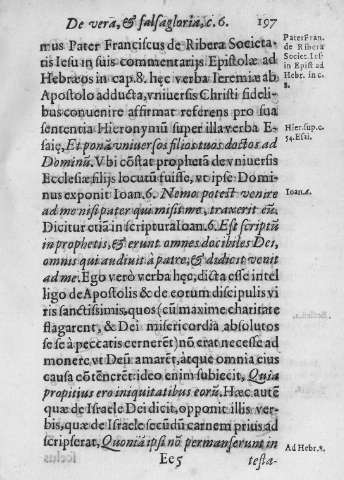 De vera, & falsa gloria, c. 6. 197
mus Pater Franciscus de Ribera Societa-
tis Iesu in suis commentarijs Epistolæ ad
Hebræos in cap. 8. hęc verba Ieremiæ ab
Apostolo adducta, vniuersis Christi fideli-
bus conuenire affirmat referens pro sua
sententia Hieronymũ super illa verba E-
saię, Et ponã vniuersos filios tuos doctos ad
Dominũ. Vbi cõstat prophetã de vniuersis
Ecclesiæ filijs locutũ fuisse, vt ipse Domi-
nus exponit Ioan. 6. Nemo potest venire
ad me nisi pater qui misit me, traxerit eũ.
Dicitur etiã in scriptura Ioan. 6. Est scriptũ
in prophetis, & erunt omnes docibiles Dei,
omnis qui audiuit à patre, & dedicit venit
ad me. Ego verò verba hęc, dicta esse intel
ligo de Apostolis & de eorum discipulis vi
ris sanctissimis, quos (cũ maxime charitate
flagarent, & Dei misericordia absolutos
se se à peccatis cernerẽt) nõ erat necesse ad
monere vt Deũ amarẽt, atque omnia eius
causa cõtẽnerẽt: ideo enim subiecit, Quia
propitius ero iniquitatibus eorũ. Hæc autẽ
quæ de Israele Dei dicit, opponit illis ver-
bis, quæ de Israele secũdũ carnem prius ad
scripserat, Quoniã ipsi nõ permanserunt in
Ee 5 testa-
Pater Fran.
de Ribera
Societ. Iesu
in Epist ad
Hebr. in c.
8.
Hier. sup. c.
54. Esai.
Ioan. 6.
Ad Hebr. 8.